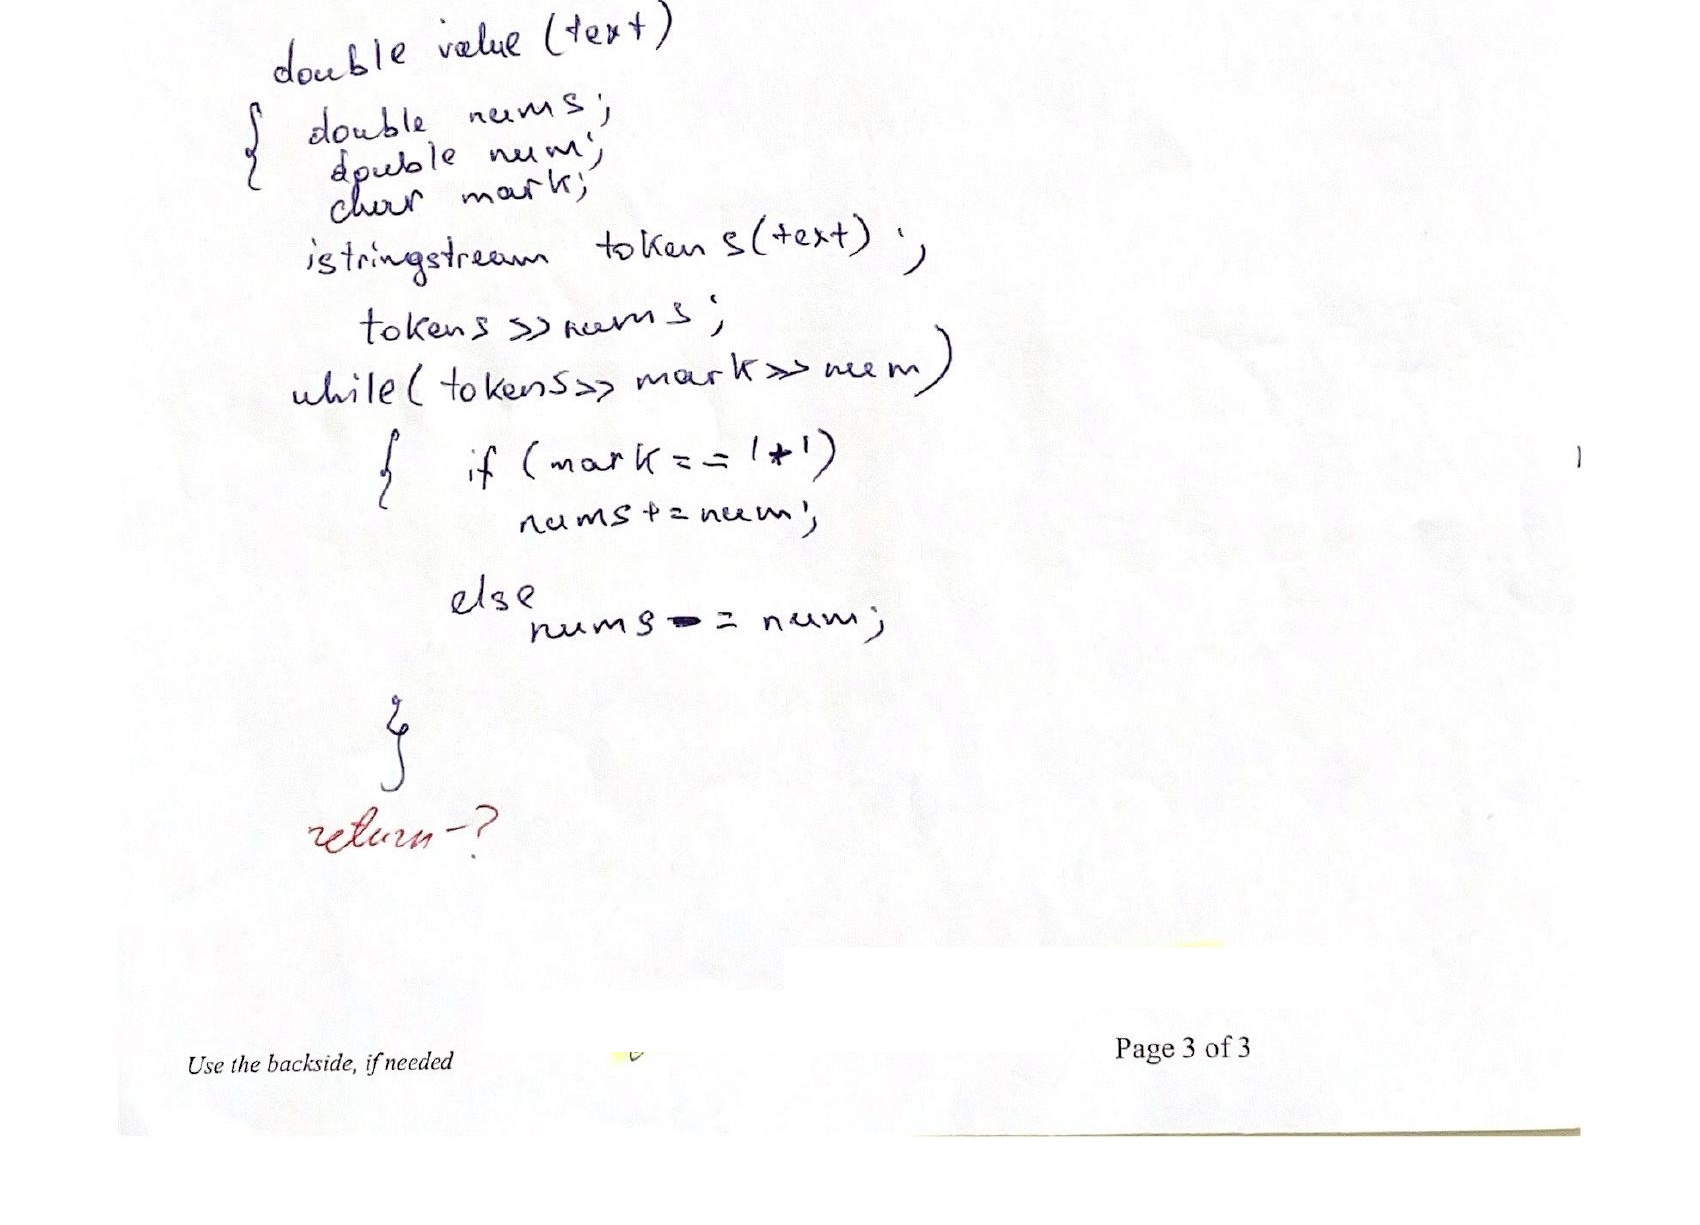 double value (text)
{ double nums;
double num;
char mark;
istringstream tokens(text);
tokens >> nums;
while( tokens>> mark>> num)
{ if (mark == '+')
nums += num;
else
nums -= num;
}
return -?
Use the backside, if needed
Page 3 of 3